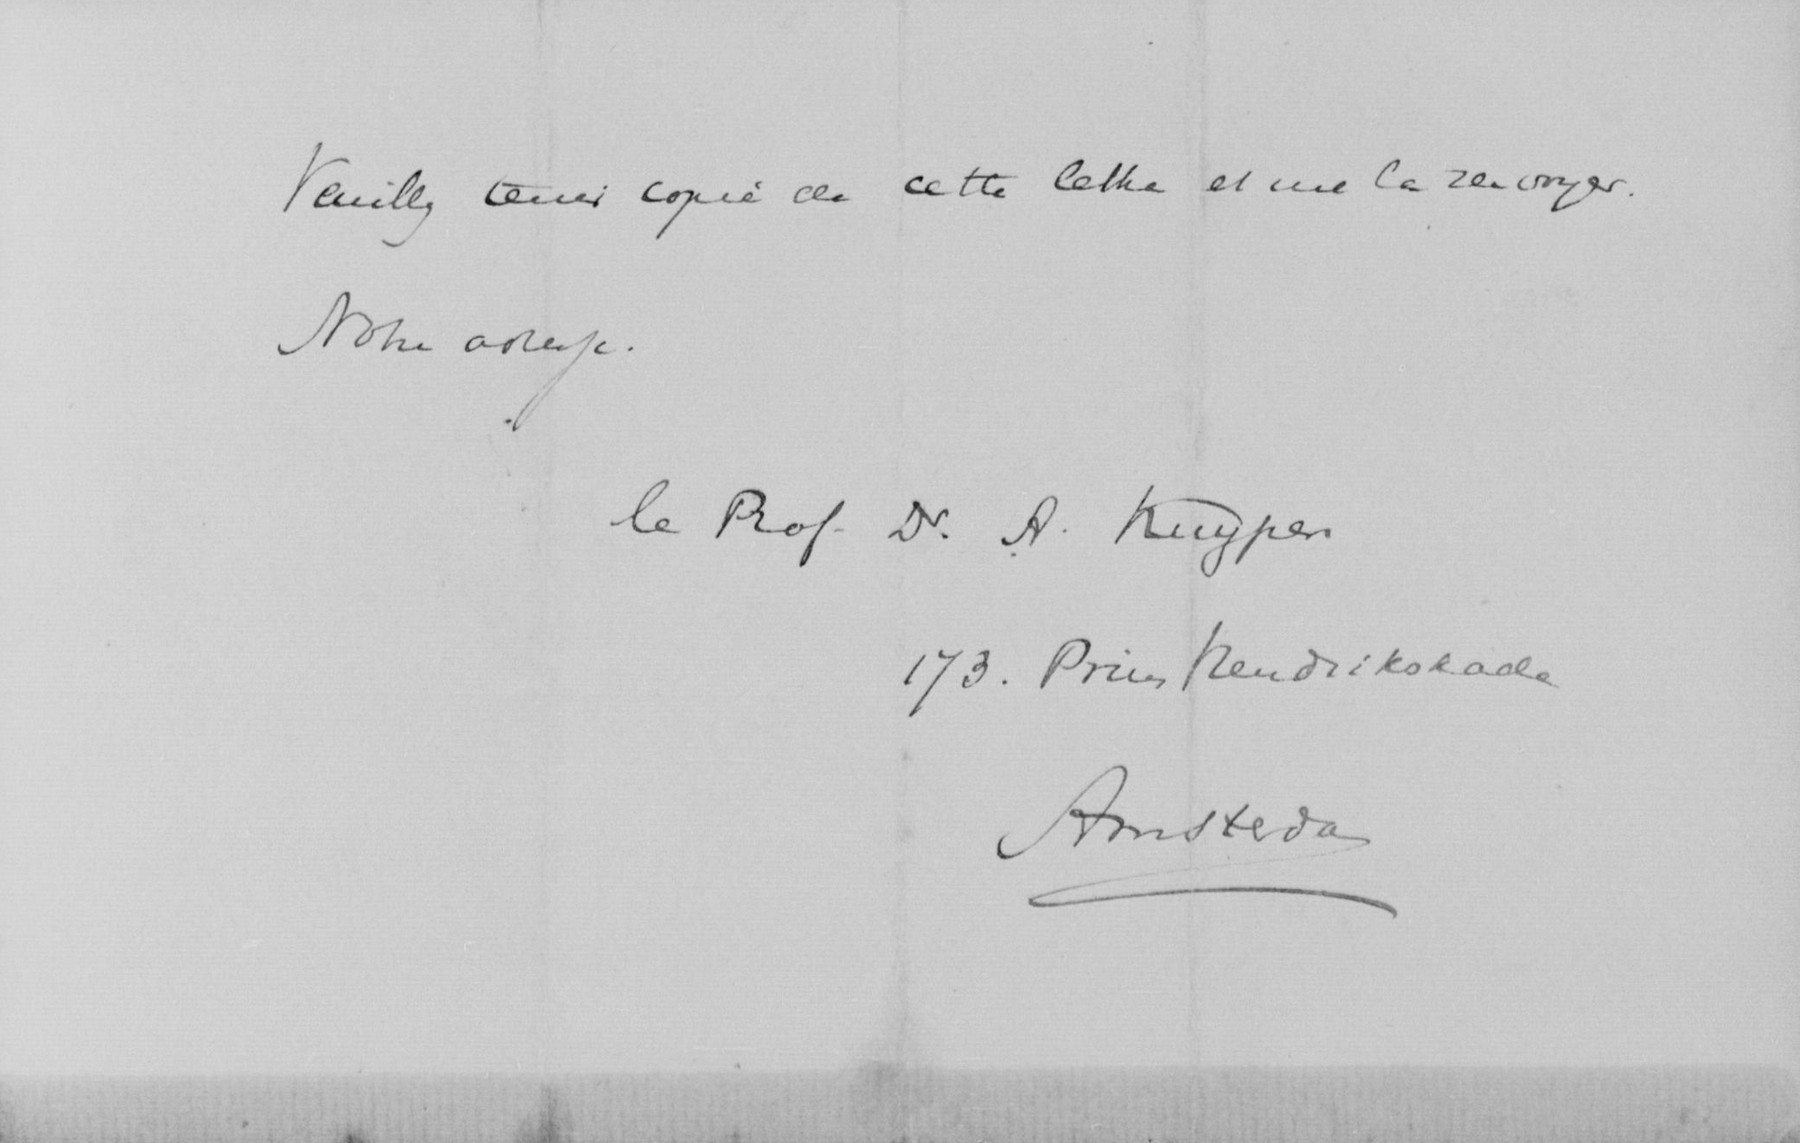 Veuillez tenir copie de cette lettre et me la renvoyer.
Notre adresse.
le Prof. Dr. A. Kuyper
173. Prins Hendrikskade
Amsterdam